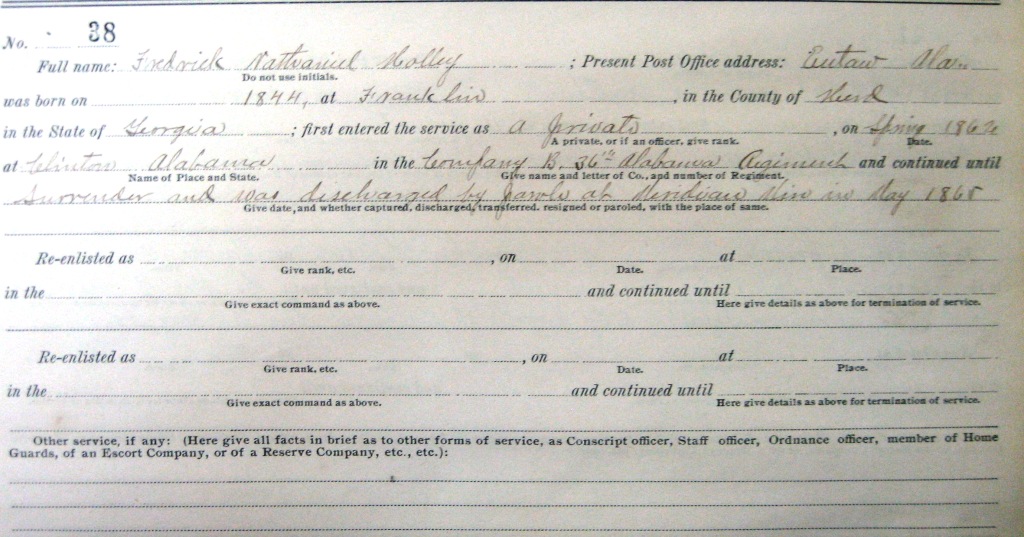 No. 38
Full name: Fredrick Nathaniel Holley ; Present Post Office address: Eutaw Ala
Do not use initials.
was born on 1844, at Franklin , in the County of Heard
in the State of Georgia ; first entered the service as a private , on Spring 1862
A private, or if an officer, give rank. Date.
at Clinton Alabama in the Company B, 36th Alabama Regiment and continued until
Name of Place and State. Give name and letter of Co., and number of Regiment.
Surrender and was discharged by parole at Meridian Miss in May 1865
Give date, and whether captured, discharged, transferred, resigned or paroled, with the place of same.
Re-enlisted as , on at
Give rank, etc. Date. Place.
in the and continued until
Give exact command as above. Here give details as above for termination of service.
Re-enlisted as , on at
Give rank, etc. Date. Place.
in the and continued until
Give exact command as above. Here give details as above for termination of service.
Other service, if any: (Here give all facts in brief as to other forms of service, as Conscript officer, Staff officer, Ordnance officer, member of Home
Guards, of an Escort Company, or of a Reserve Company, etc., etc.):